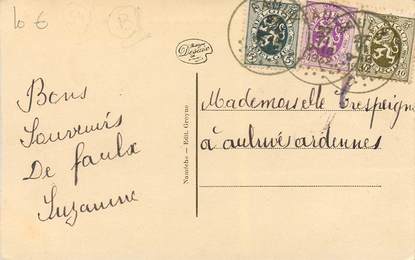 10 €
B
Desaix
Bons
Souvenirs
De faulx
Suzanne
Nandche - Edit. Greyne
Mademoiselle Crespeigne
à aulnvé ardennes
5
10